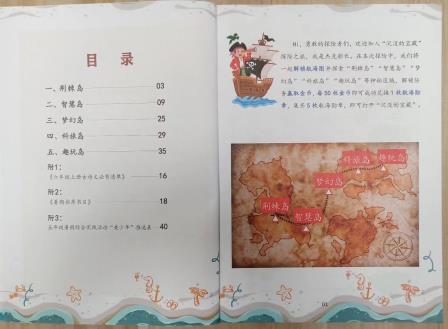 目 录
一、荆棘岛 03
二、智慧岛 09
三、梦幻岛 25
四、科旅岛 29
五、趣玩岛 35
附1：
《六年级上册古诗文必背清单》 16
附2：
《暑期推荐书目》 18
附3：
五年级暑假综合实践活动“美少年”推选表 40
Hi，勇敢的探险者们，欢迎加入“沉没的宝藏”
探险之旅，我是杰克船长。在本次探险中，我们将
一起解锁航海图并探索“荆棘岛”“智慧岛”“梦
幻岛”“科旅岛”“趣玩岛”等神秘区域，解锁任
务赢取金币，每50枚金币即可成功兑换1枚航海勋
章，集齐5枚航海勋章，即可打开“沉没的宝藏”。
科旅岛 趣玩岛
梦幻岛
荆棘岛
智慧岛
01